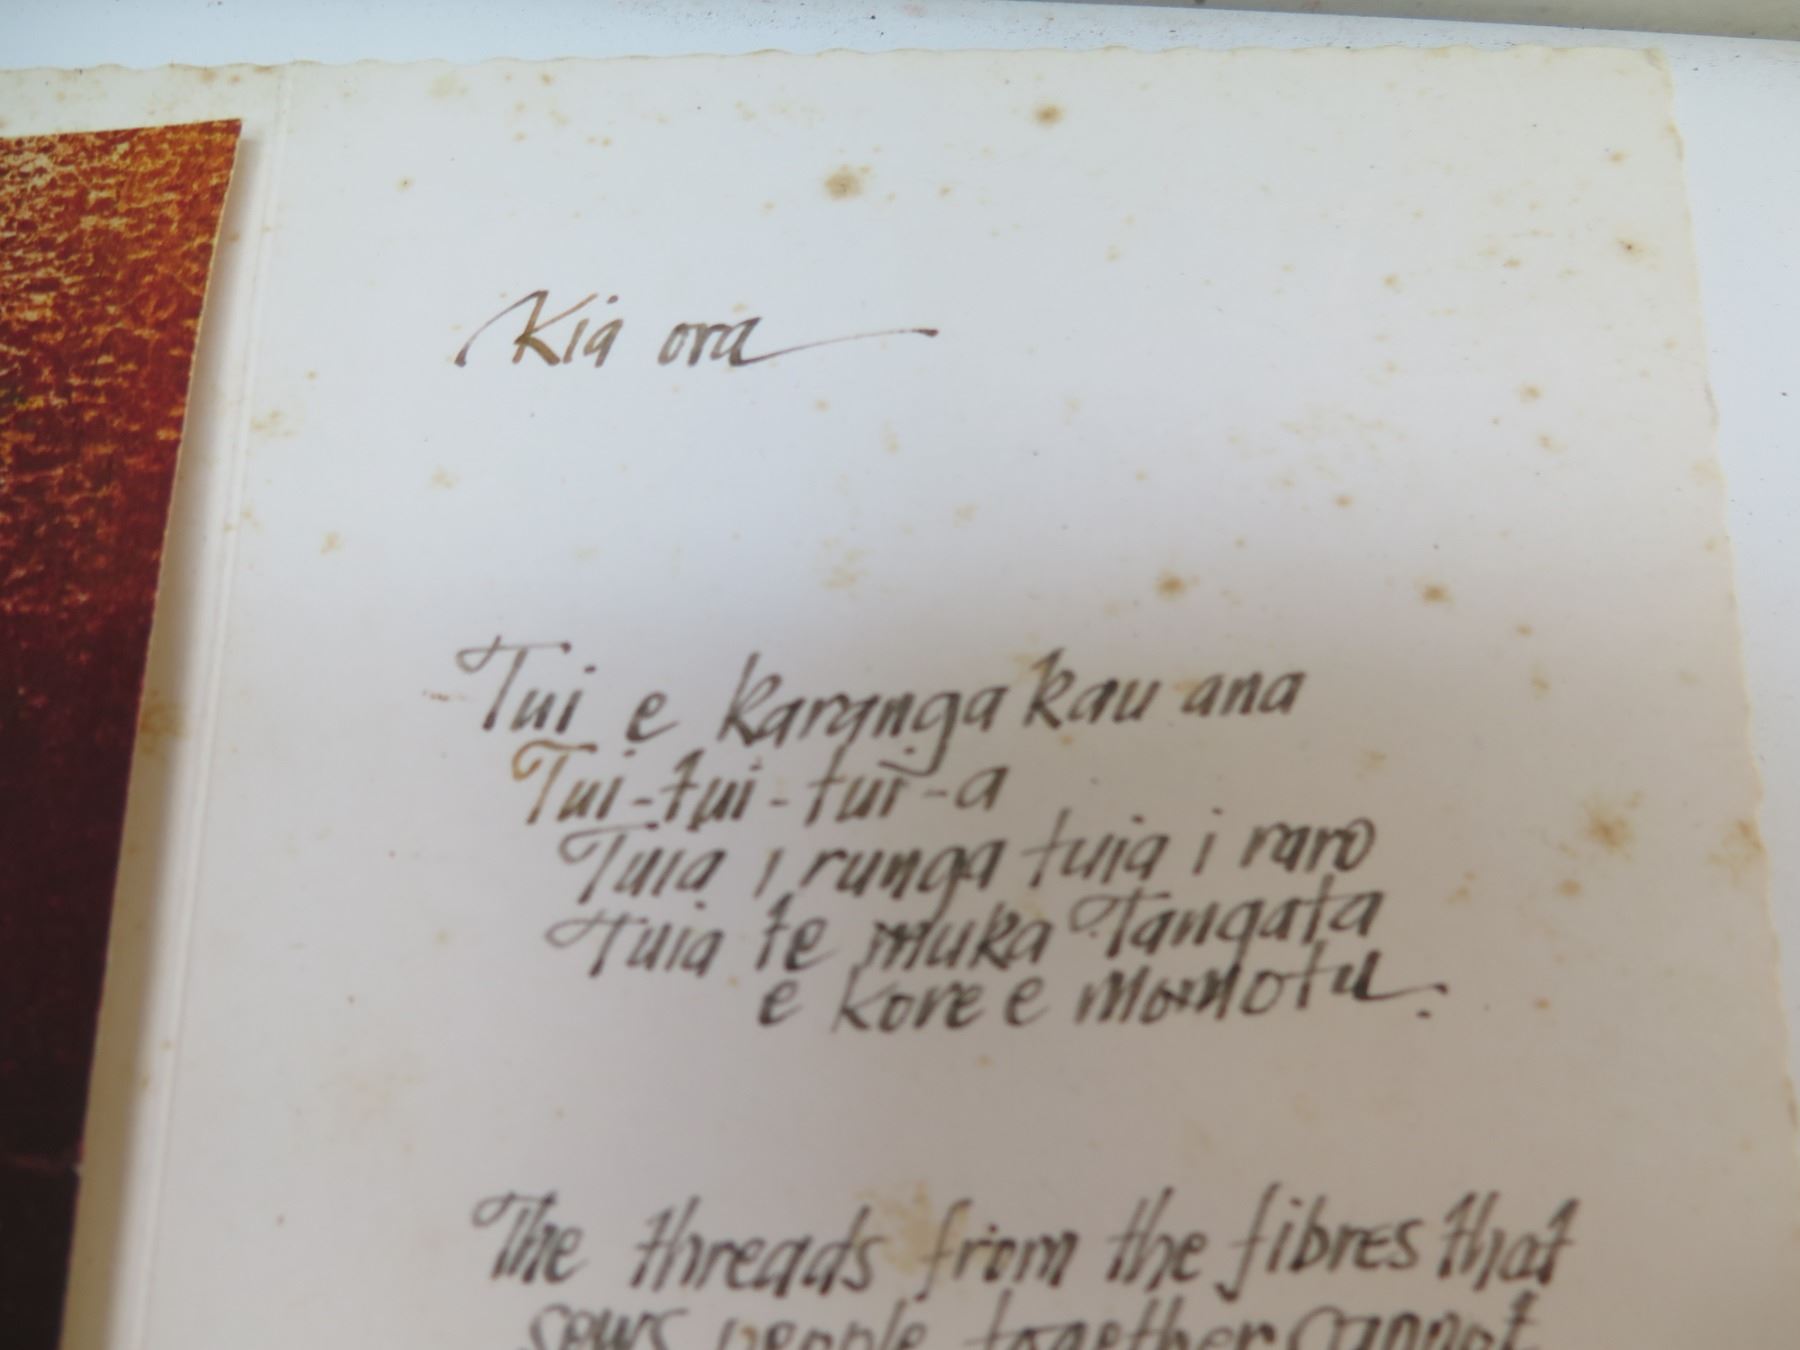 Kia ora
Tui e karanga kau ana
Tui-tui-tui-a
Tuia i runga tuia i raro
Tuia te muka Tangata
e kore e momotu.
The threads from the fibres that
sews people together cannot